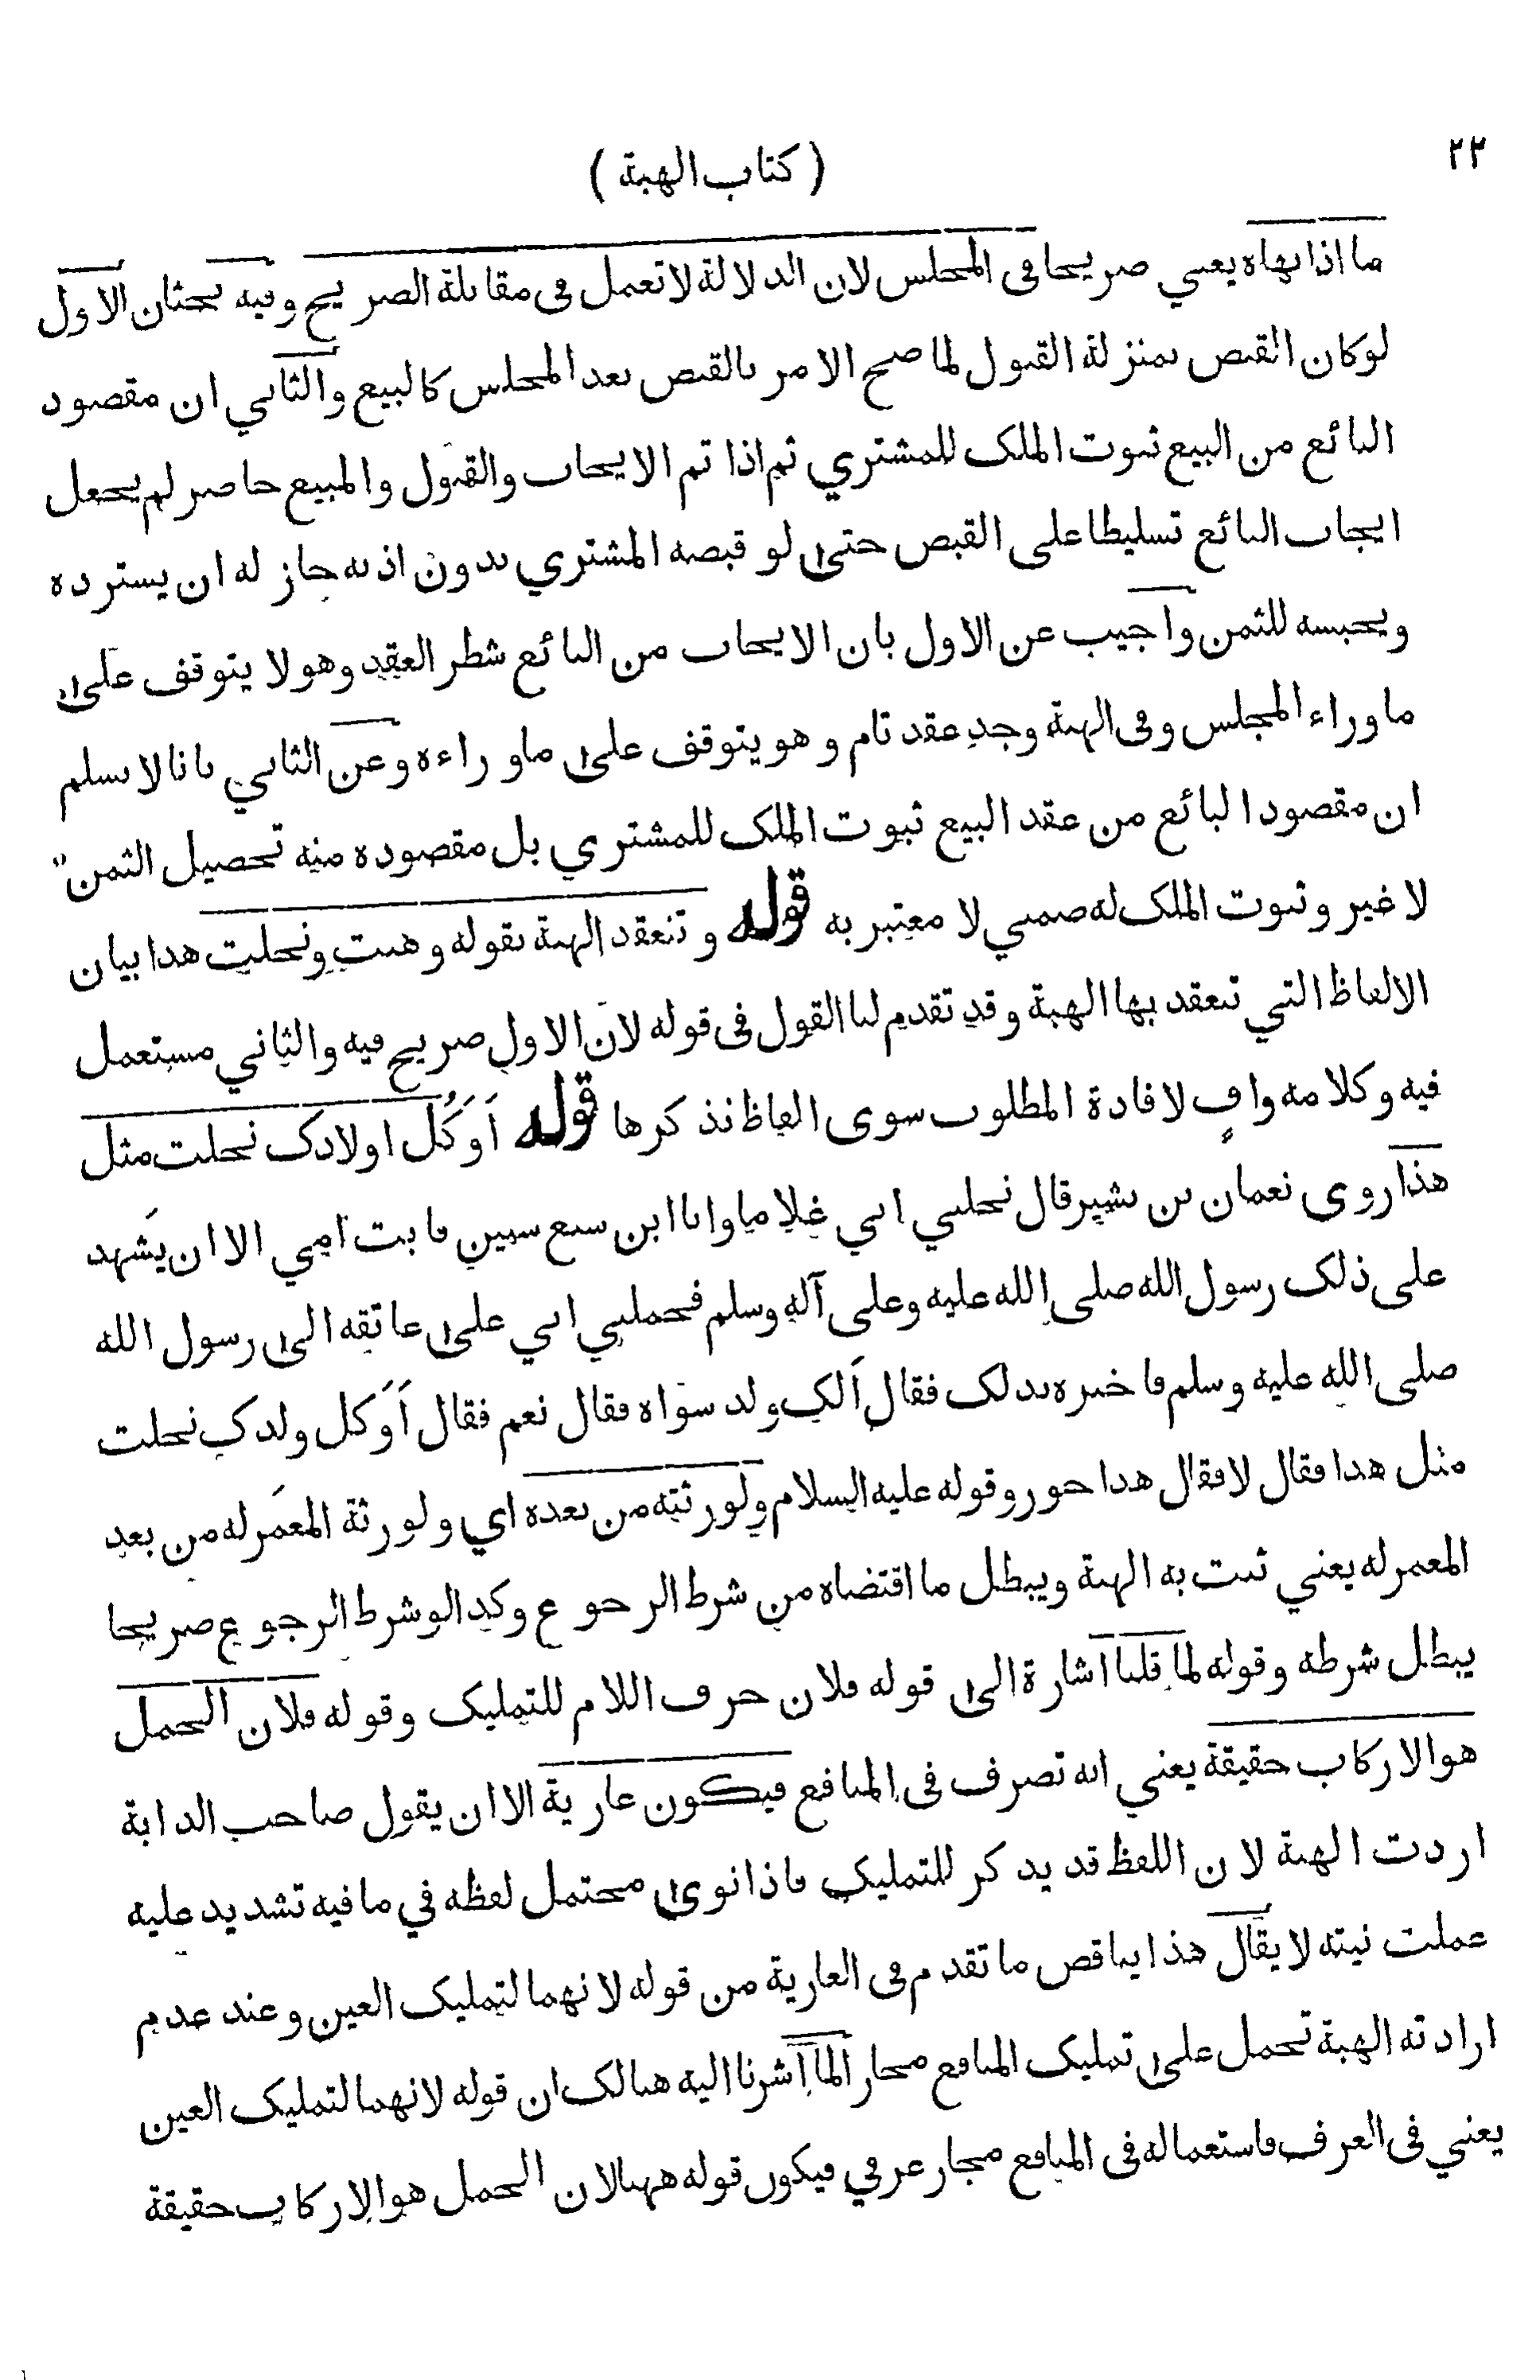 ٢٢
( كتاب الهبة )
ما اذا نهاه يعني صريحا في المجلس لان الدلالة لا تعمل في مقابلة الصريح وفيه بحثان الاول
لوكان القبض بمنزلة القبول لما صح الامر بالقبض بعد المجلس كالبيع والثاني ان مقصود
البائع من البيع ثبوت الملك للمشتري ثم اذا تم الايجاب والقبول والمبيع حاضر لم يجعل
ايجاب البائع تسليطا على القبض حتى لو قبضه المشتري بدون اذنه جاز له ان يسترده
ويحبسه للثمن واجيب عن الاول بان الايجاب من البائع شطر العقد وهو لا يتوقف على
ما وراء المجلس وفي الهبة وجد عقد تام و هو يتوقف على ماو راءه وعن الثاني بانا لا نسلم
ان مقصود البائع من عقد البيع ثبوت الملك للمشتري بل مقصوده منه تحصيل الثمن
لا غير وثبوت الملك له ضمني لا معتبر به قوله و تنعقد الهبة بقوله وهبت ونحلت هذا بيان
الالفاظ التي تنعقد بها الهبة وقد تقدم لنا القول في قوله لان الاول صريح فيه والثاني مستعمل
فيه وكلامه وافٍ لافادة المطلوب سوى الفاظ نذكرها قوله اَوَكُل اولادك نحلت مثل
هذا روى نعمان بن بشير قال نحلني ابي غلاما وانا ابن سبع سنين فابت امي الا ان يَشهد
على ذلك رسول الله صلى الله عليه وعلى آله وسلم فحملني ابي على عاتقه الى رسول الله
صلى الله عليه وسلم فاخبره بذلك فقال اَلك ولد سواه فقال نعم فقال اَوَكل ولدك نحلت
مثل هذا فقال لا فقال هذا جور وقوله عليه السلام ولورثته من بعده اي ولورثة المعمَر له من بعد
المعمر له يعني ثبت به الهبة ويبطل ما اقتضاه من شرط الرجوع وكذا لو شرط الرجوع صريحا
يبطل شرطه وقوله لما قلنا اشارة الى قوله فلان حرف اللام للتمليك وقوله فلان الحمل
هو الاركاب حقيقة يعني انه تصرف في المنافع فيكون عارية الا ان يقول صاحب الدابة
اردت الهبة لان اللفظ قد يذكر للتمليك فاذا نوى محتمل لفظه في ما فيه تشديد عليه
عملت نيته لا يقال هذا يناقض ما تقدم في العارية من قوله لانهما لتمليك العين وعند عدم
ارادته الهبة تحمل على تمليك المنافع مجازا لما اشرنا اليه هنالك ان قوله لانهما لتمليك العين
يعني في العرف فاستعماله في المنافع مجاز عرفي فيكون قوله ههنا لان الحمل هو الاركاب حقيقة